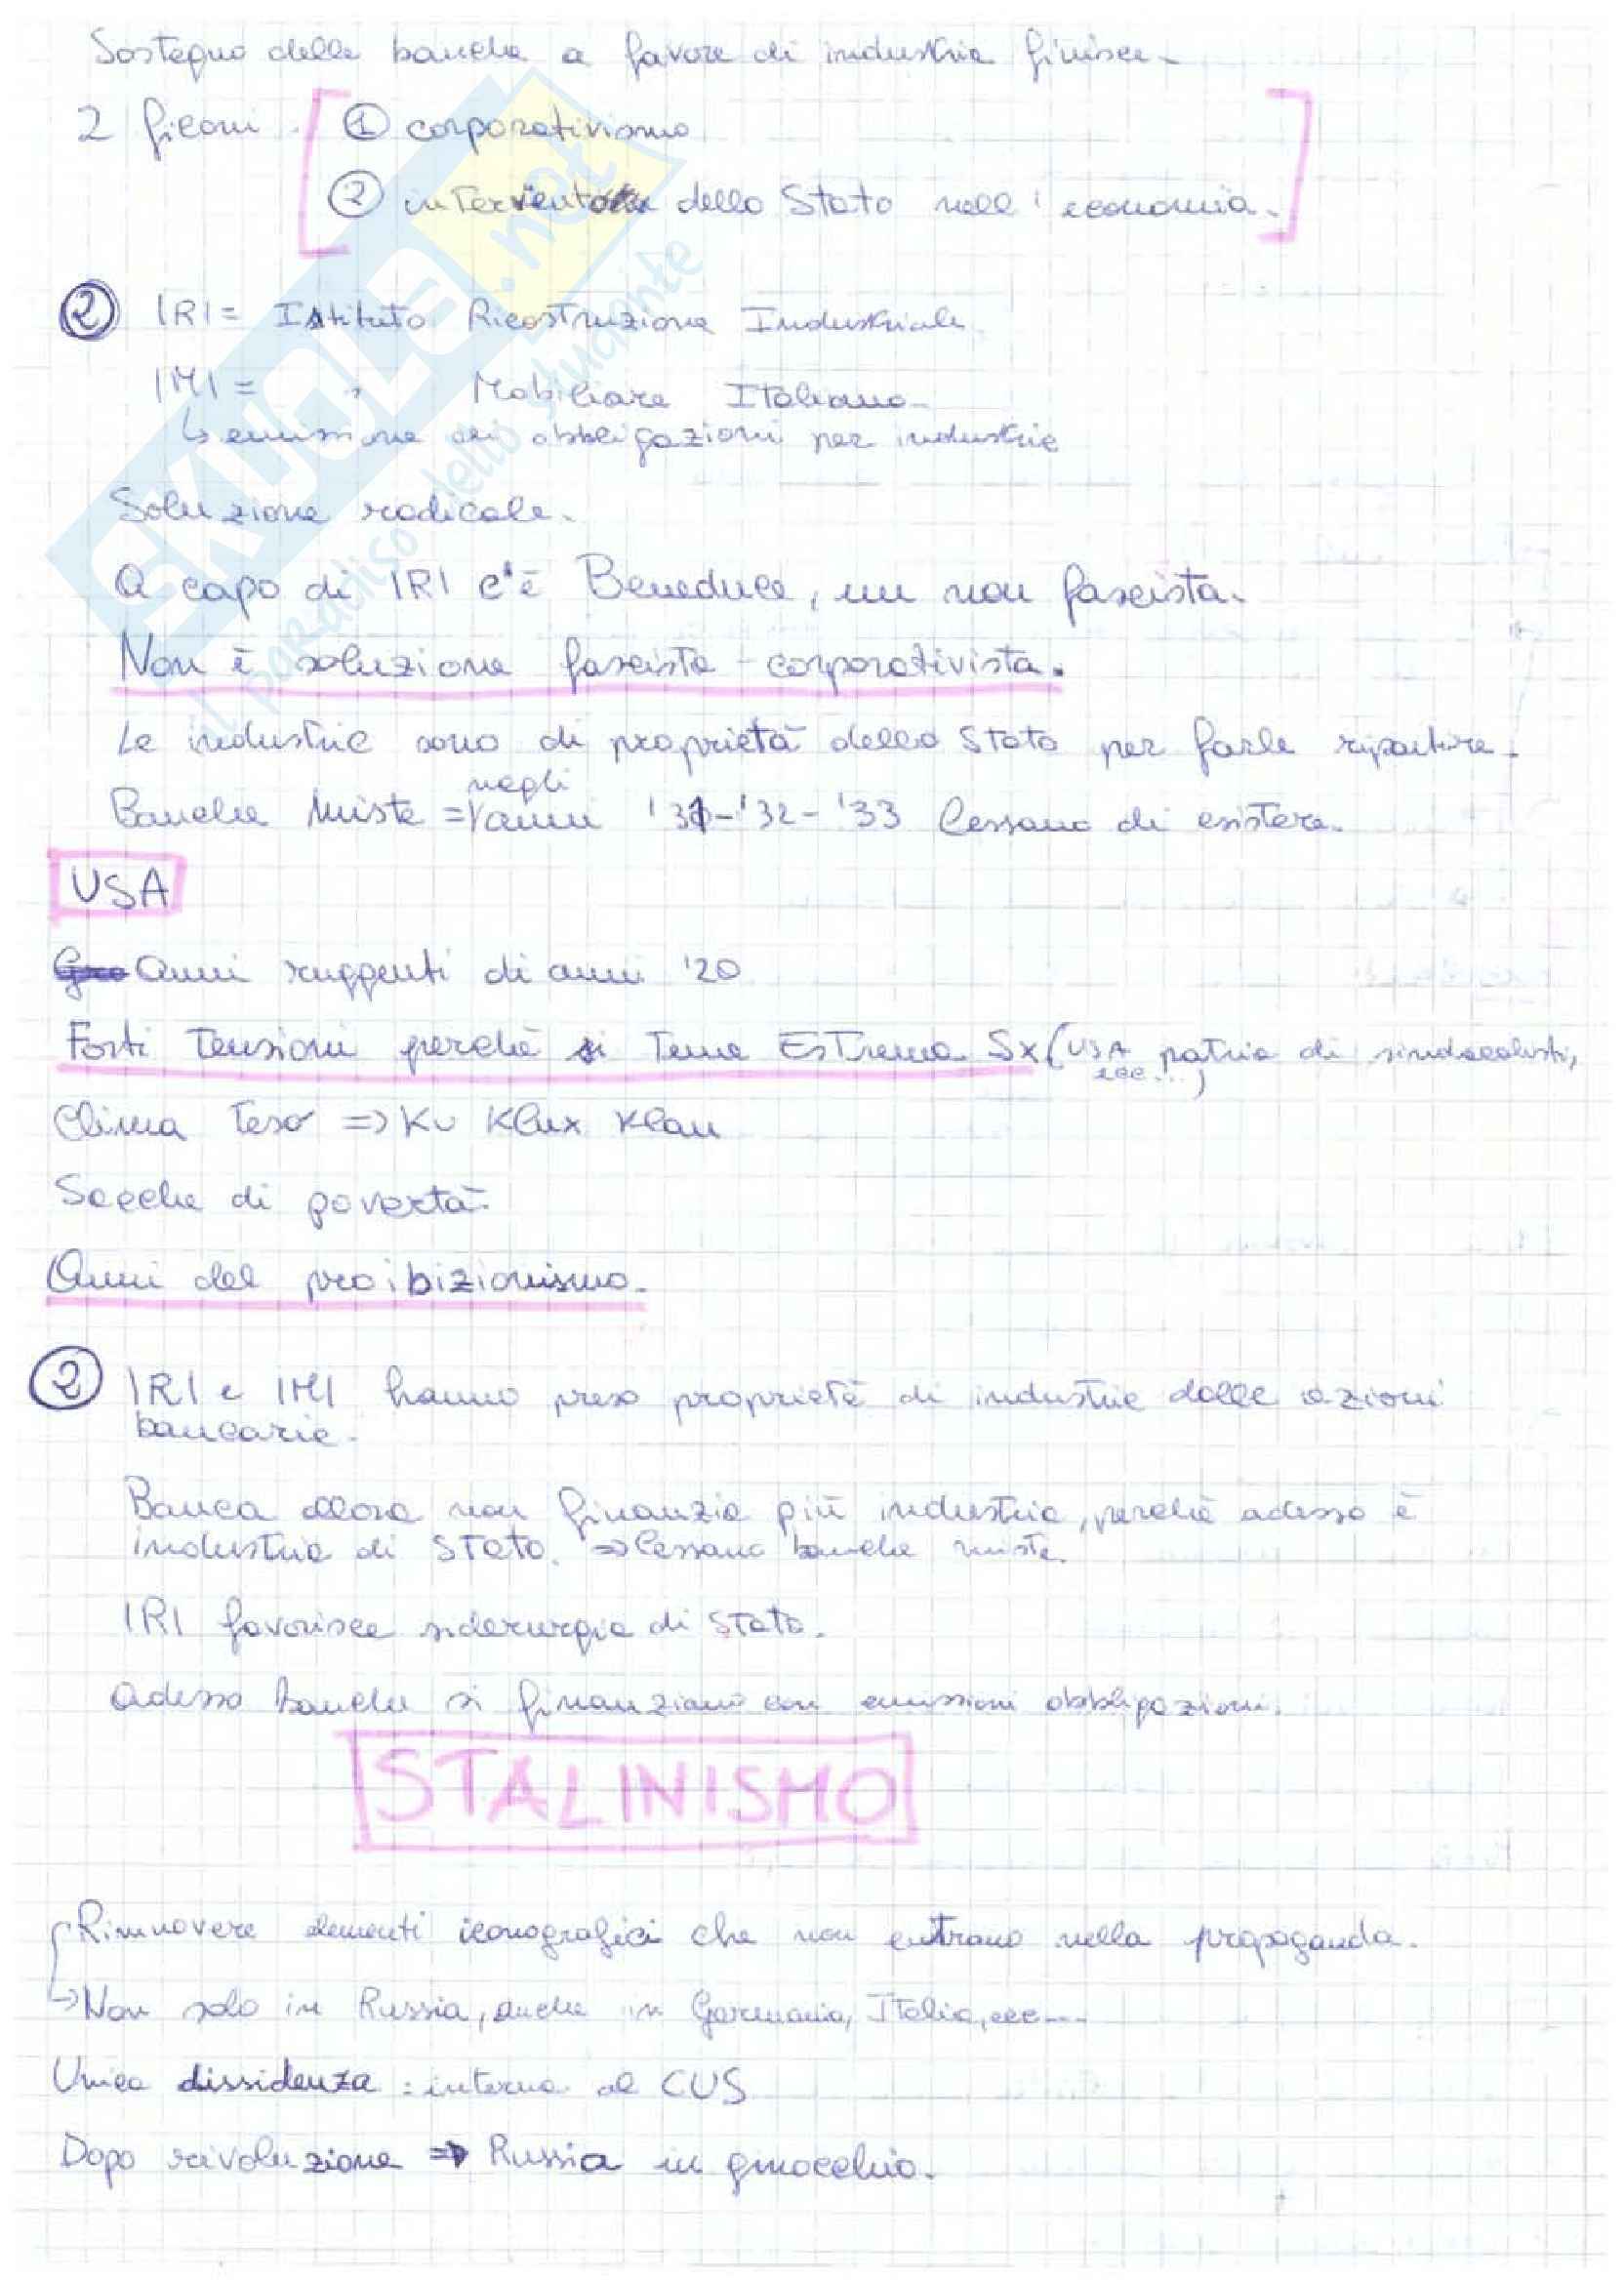 Sostegno delle banche a favore di industria finisce.
2 filoni : ① corporativismo
② intervento dello Stato nell'economia.
② IRI = Istituto Ricostruzione Industriale.
IMI = " Mobiliare Italiano.
↳ emissione di obbligazioni per industrie
Soluzione radicale.
A capo di IRI c'è Beneduce, un non fascista.
Non è soluzione fascista-corporativista.
Le industrie sono di proprietà dello Stato per farle ripartire.
Banche Miste = negli anni '31-'32-'33 Cessano di esistere.
USA
Anni ruggenti di anni '20
Forti Tensioni perchè si Teme Estrema Sx (USA patria di sindacalisti, ecc...)
Clima Teso => KU Klux Klan
Sacche di povertà.
Anni del proibizionismo.
② IRI e IMI hanno preso proprietà di industrie dalle azioni
bancarie.
Banca allora non finanzia più industria, perchè adesso è
industria di Stato. => Cessano banche miste.
IRI favorisce siderurgia di Stato.
Adesso Banche si finanziano con emissioni obbligazioni.
STALINISMO
Rimuovere elementi iconografici che non entrano nella propaganda.
→ Non solo in Russia, anche in Germania, Italia, ecc...
Unica dissidenza : interna al CUS
Dopo rivoluzione => Russia in ginocchio.
SKUOLA.net
il paradiso dello studente